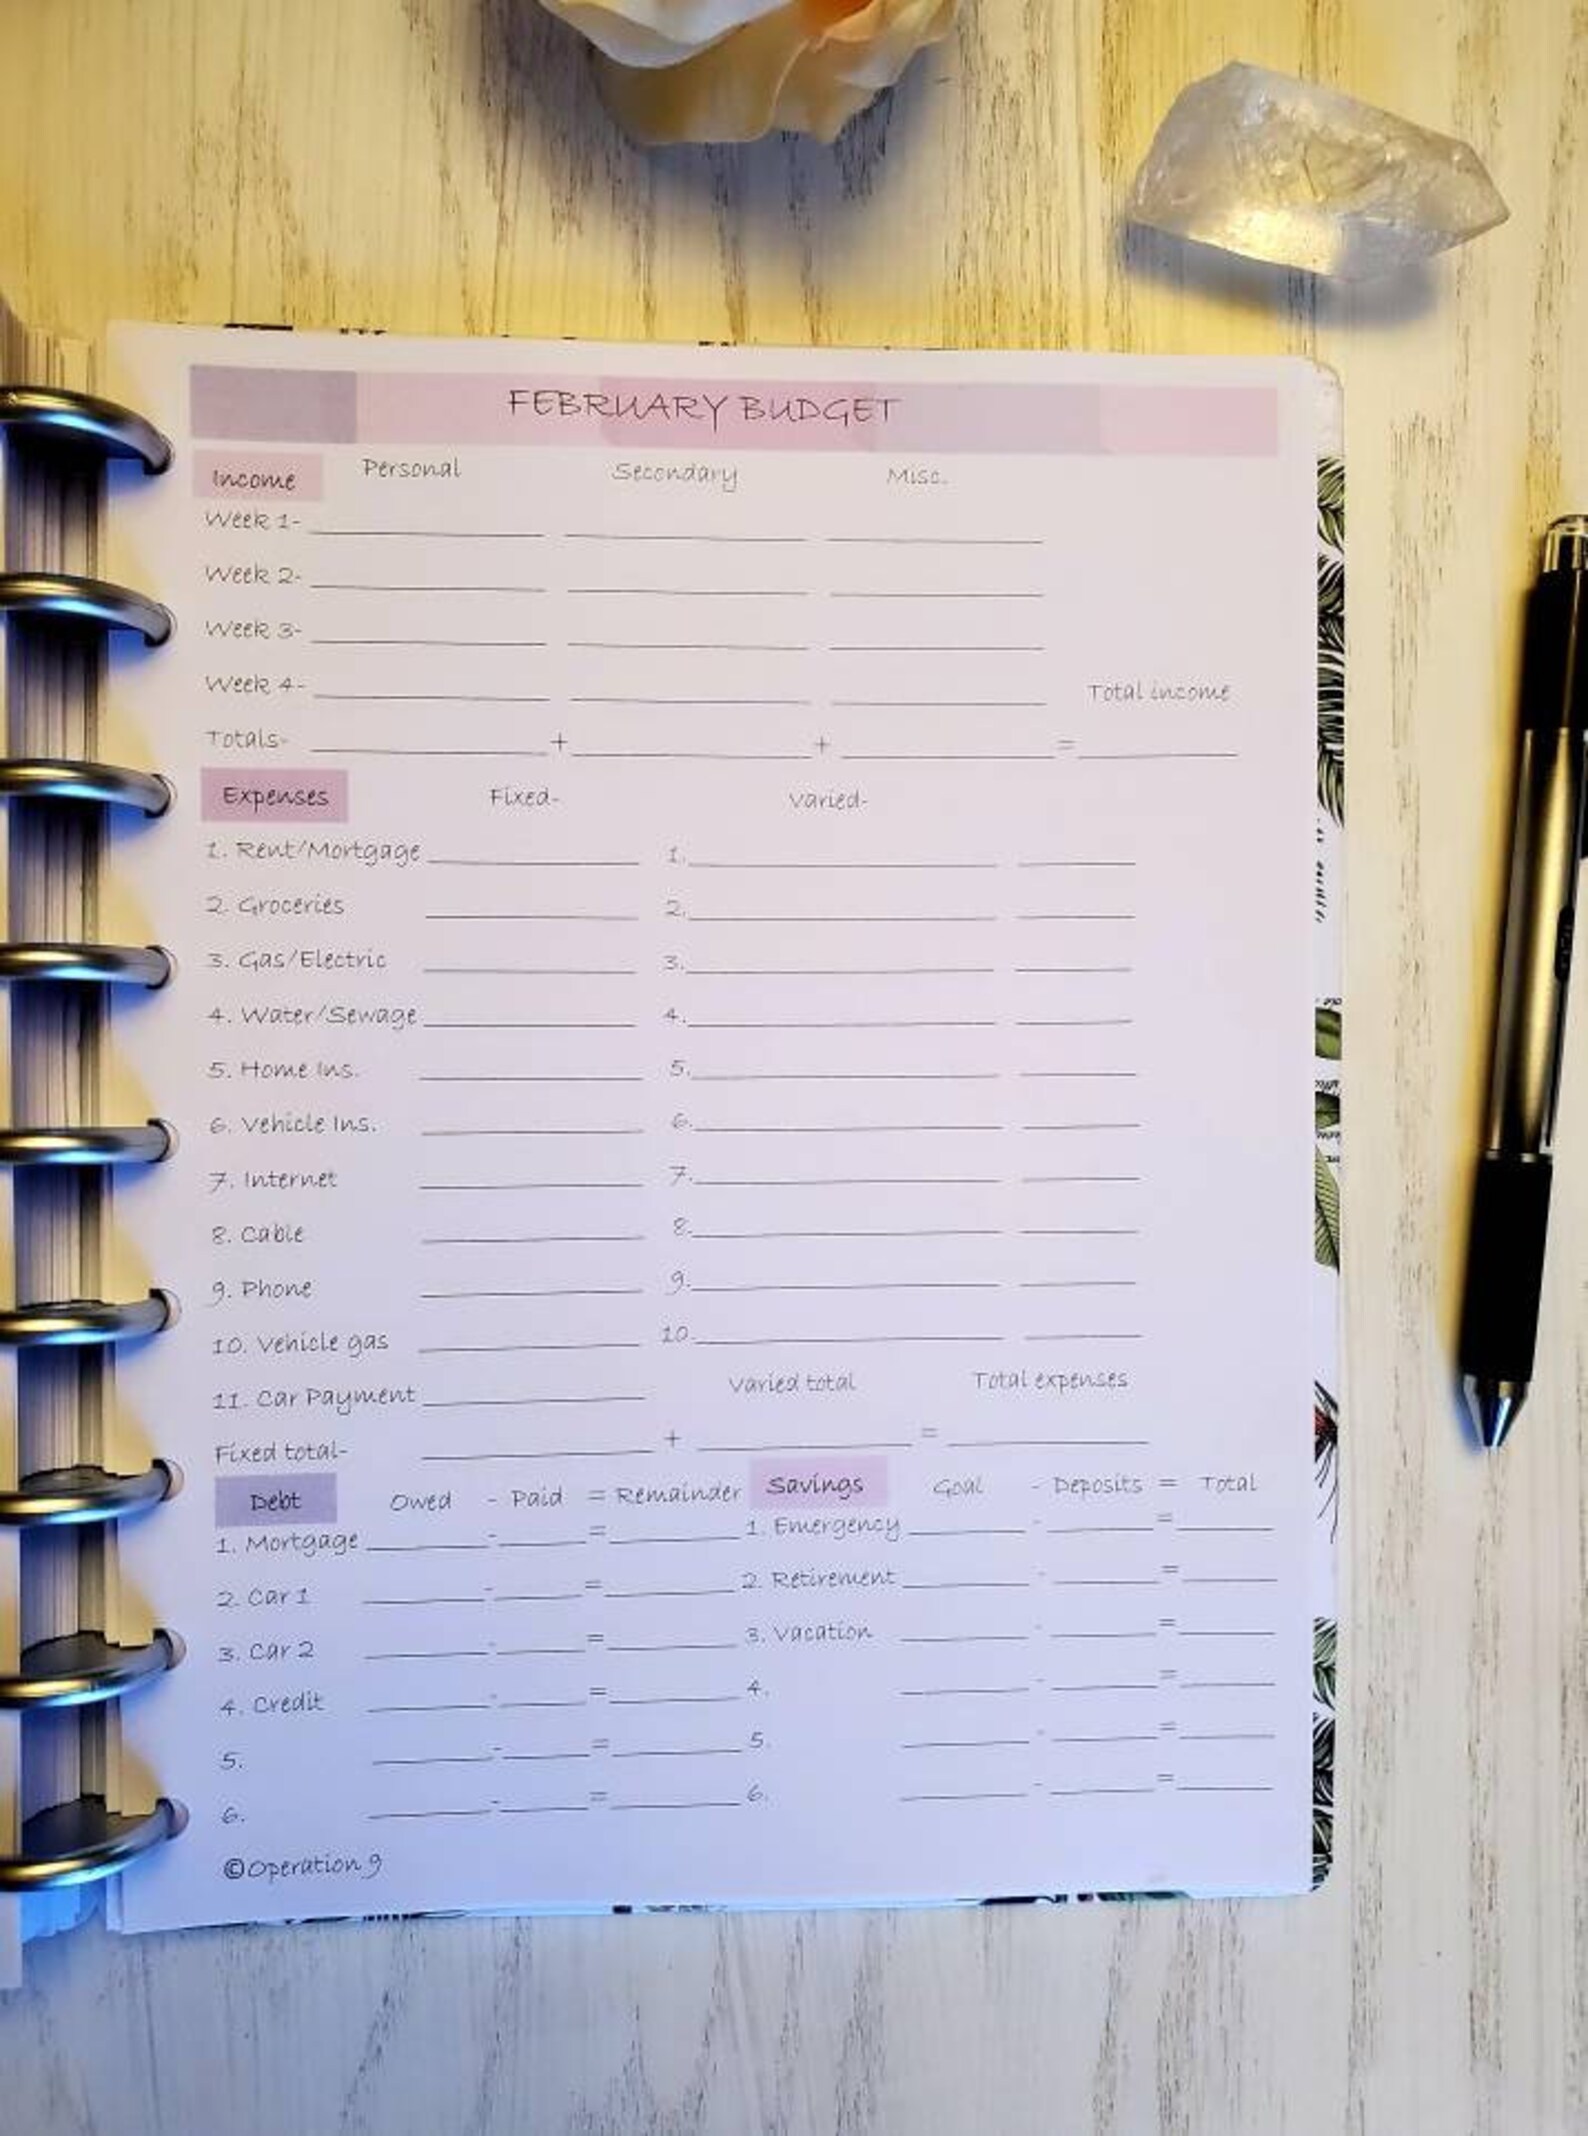 FEBRUARY BUDGET
Income Personal Secondary Misc.
Week 1-
Week 2-
Week 3-
Week 4- Total income
Totals- + + =
Expenses Fixed- Varied-
1. Rent/Mortgage 1.
2. Groceries 2.
3. Gas/Electric 3.
4. Water/Sewage 4.
5. Home Ins. 5.
6. Vehicle Ins. 6.
7. Internet 7.
8. Cable 8.
9. Phone 9.
10. Vehicle gas 10.
11. Car Payment Varied total Total expenses
Fixed total- + =
Debt Owed - Paid = Remainder Savings Goal - Deposits = Total
1. Mortgage - = 1. Emergency - =
2. Car 1 - = 2. Retirement - =
3. Car 2 - = 3. Vacation - =
4. Credit - = 4. - =
5. - = 5. - =
6. - = 6. - =
©Operation 9